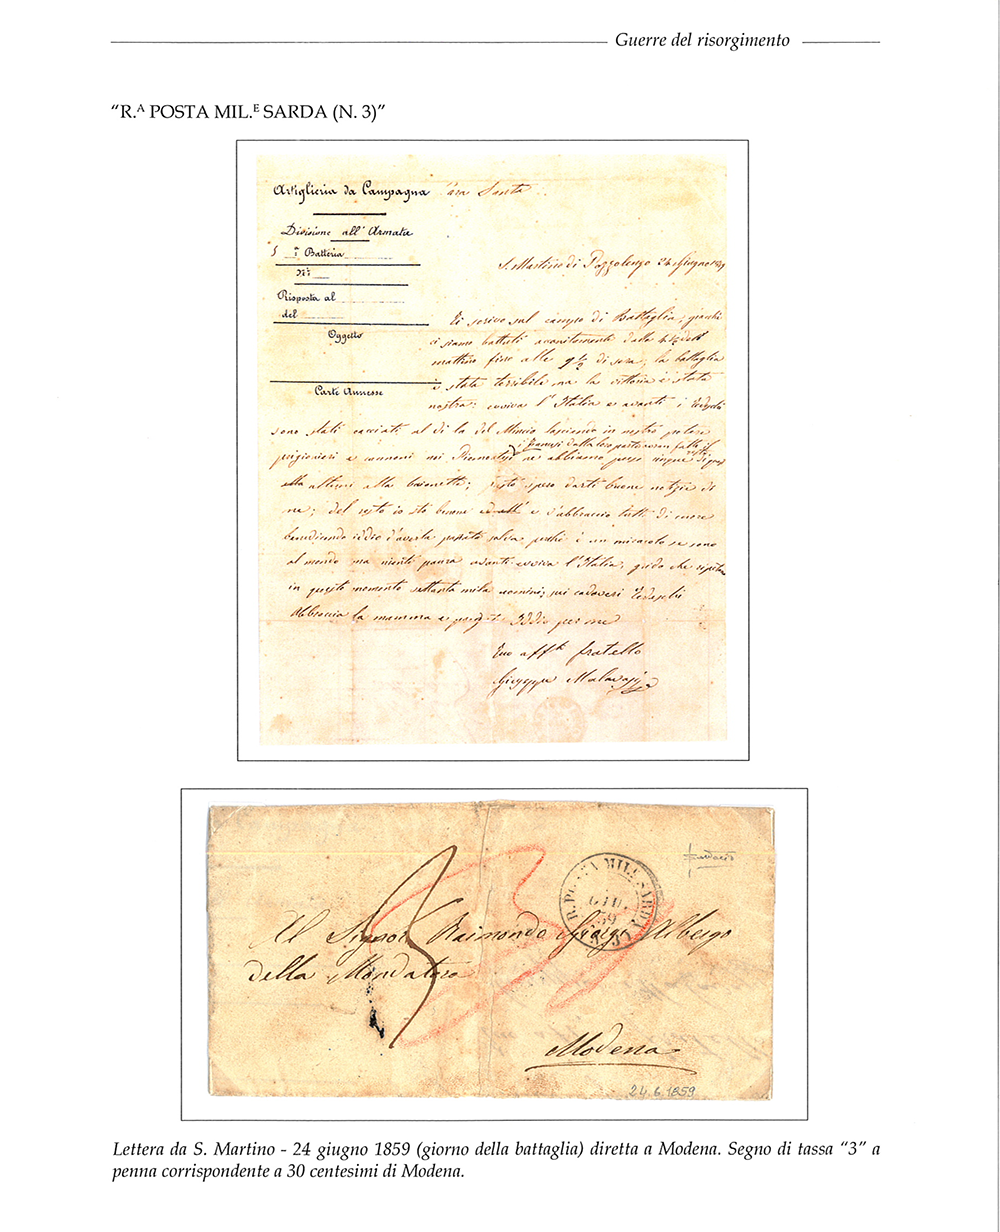 Guerre del risorgimento
“R.A POSTA MIL.E SARDA (N. 3)”
Artiglieria da Campagna
Cara Santa
Divisione all' Armata
5 1ª Batteria
N.º
Risposta al
del
Oggetto
Carte Annesse
S. Martino di Pozzolengo 24 Giugno 1859
Ti scrivo sul campo di Battaglia, giacchi
ci siamo battuti accanitamente dalle 4 ½ del
mattino fino alle 9 ½ di sera, la battaglia
è stata terribile ma la vittoria è stata
nostra: evviva l'Italia e avanti i Tedeschi
sono stati cacciati al di la del Mincio lasciando in nostro potere
prigionieri e cannoni noi Piemontesi ne abbiamo preso cinque
i francesi dalla loro parte
alla baionetta; presto spero darti buone notizie di
me; del resto io stò bene e t'abbraccio tutti di cuore
benedicendo iddio d'averla salva perchè è un miracolo se sono
al mondo ma niente paura avanti evviva l'Italia, grido che
in questo momento settanta mila uomini; sui cadaveri Tedeschi
Abbraccia la mamma e prega Iddio per me
Tuo aff.º fratello
Giuseppe
R. POSTA MILE SARDA
GIU.
59
3
3
Al Signor Raimondo Albergo
della
Modena
24.6.1859
Lettera da S. Martino - 24 giugno 1859 (giorno della battaglia) diretta a Modena. Segno di tassa “3” a
penna corrispondente a 30 centesimi di Modena.